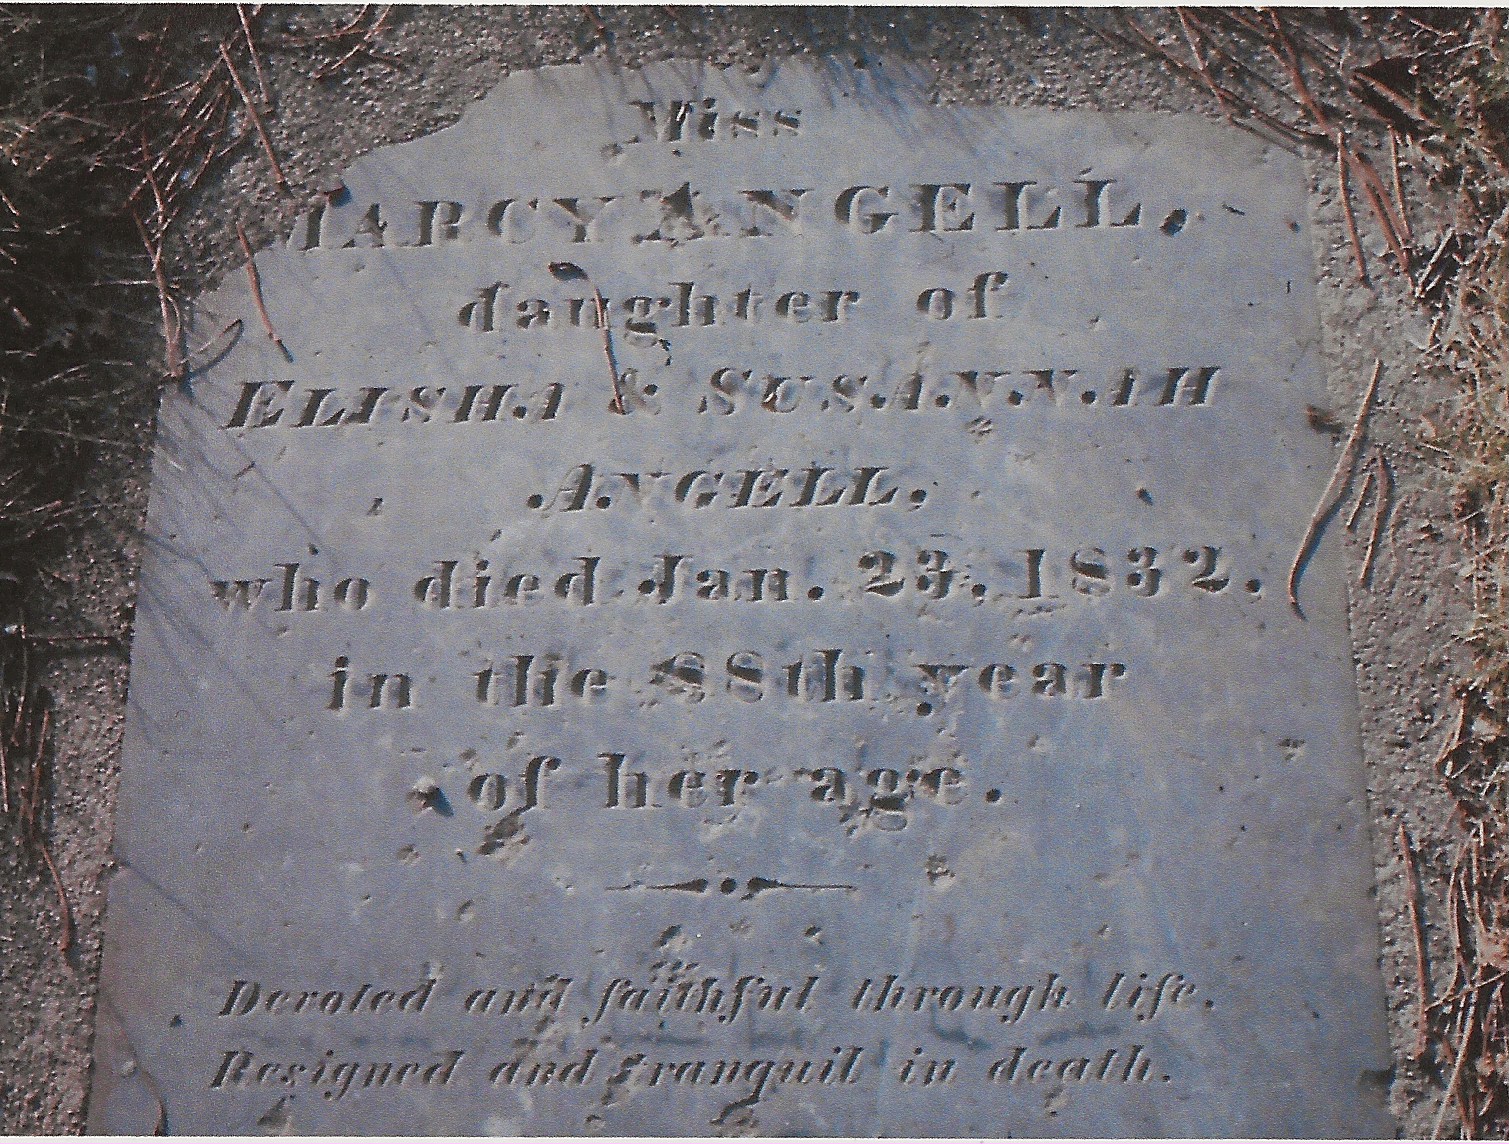 Miss
MARCY ANGELL,
daughter of
ELISHA & SUSANNAH
ANGELL,
who died Jan. 23, 1832.
in the 88th year
of her age.
Devoted and faithful through life.
Resigned and tranquil in death.